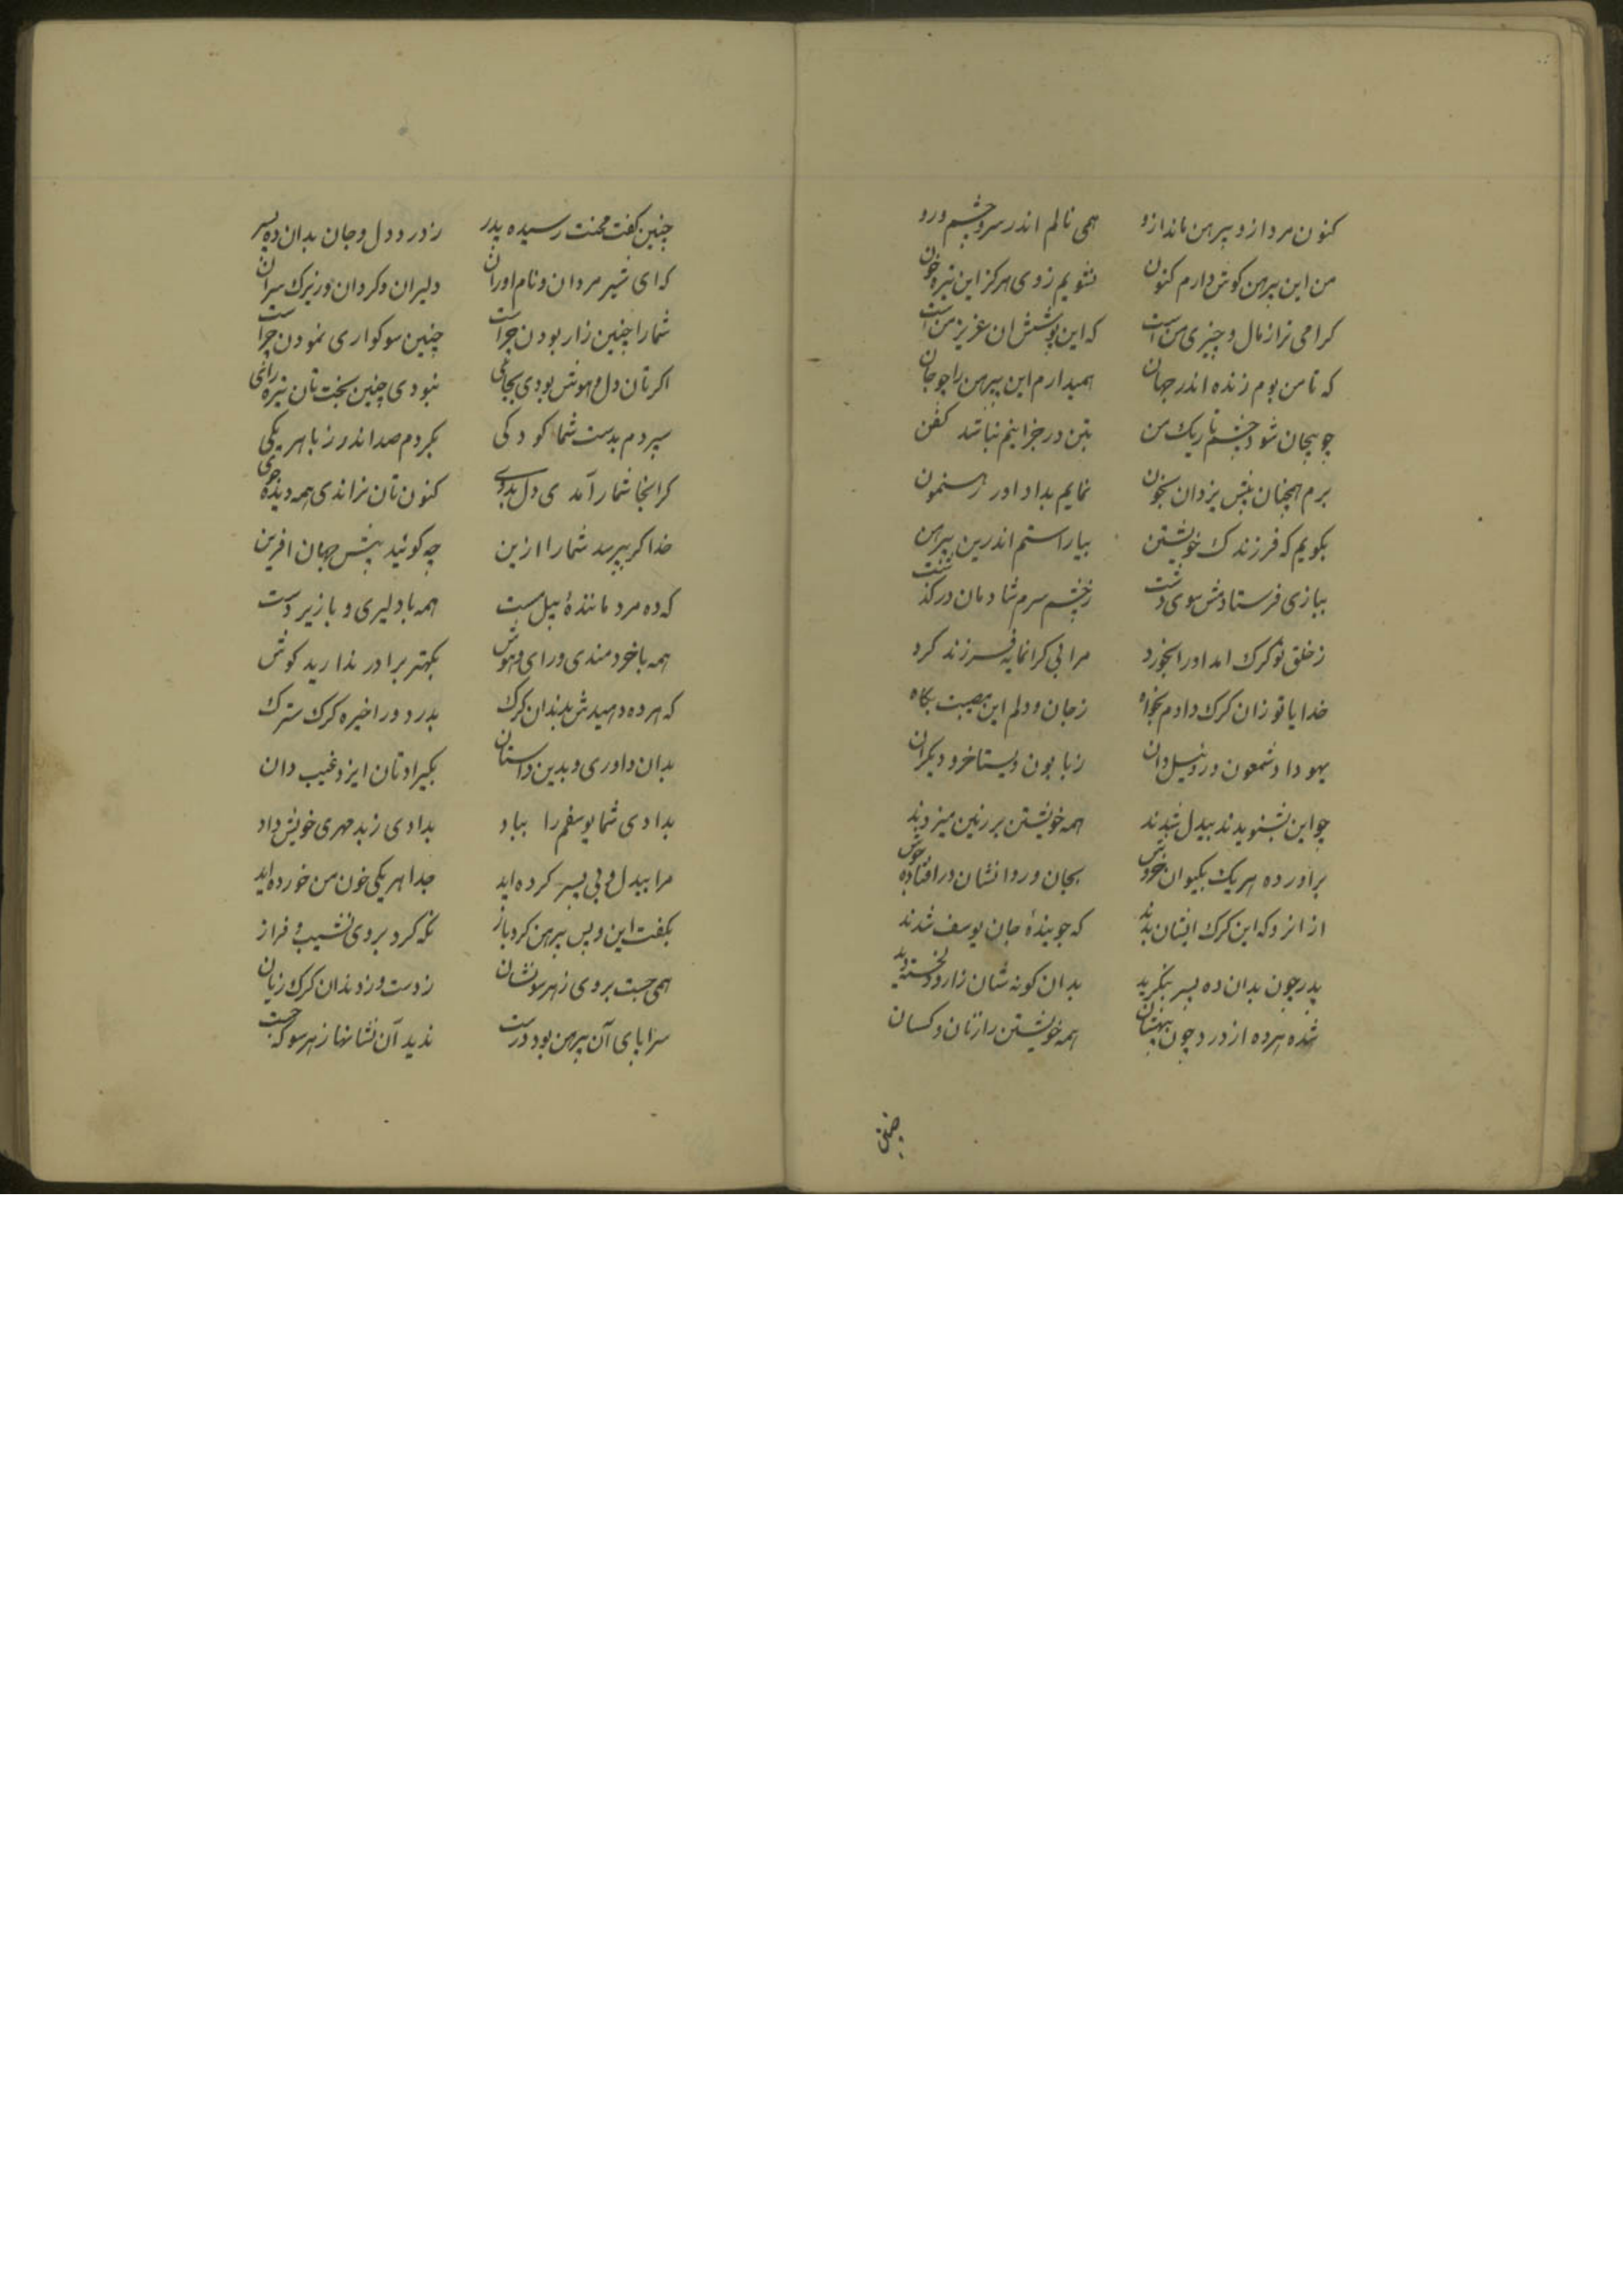 کنون مرد ازو پیرهن ماند ازو همی نالم اندر سر و چشم و رو
من این پیرهن کوش دارم کنون نشویم ز وی هرکز این تیره خون
کرامی تر از مال و چیزی من است که این پوشش ان عزیز من است
که تا من بوم زنده اندر جهان همیدارم این پیرهن را چو جان
چو بیجان شود چشم تاریک من بتن در جز اینم نباشد کفن
برم همچنان پیش یزدان بخون نمایم بداد اور رهنمون
بکویم که فرزندک خویشتن بیاراستم اندرین پیرهن
ببازی فرستادمش سوی دشت ز چشم سرم شادمان در کذشت
ز خلق تو کرک امد اورا بخورد مرا بی کرانمایه فرزند کرد
خدایا تو زان کرک دادم بخواه ز جان و دلم این مصیبت بکاه
یهودا و شمعون و روبیل دان زبابون و یستاخر و دیکران
چو این بشنویدند بیدل شدند همه خویشتن بر زمین میزدند
براورده هر یک بکیوان خروش بجان و روانشان در افتاده جوش
از انرو که این کرک ایشان بدند که جویندهٔ جان یوسف شدند
پدر چون بدان ده پسر بنکرید بدان کونه شان زار و دلخسته دید
شده هر ده از درد چون بیهشان همه خویشتن را زنان و کسان
چنین
چنین کفت محنت رسیده پدر ز درد دل و جان بدان ده پسر
که ای شیر مردان و نام اوران دلیران و کردان و زیرک سران
شما را چنین زار بودن چراست چنین سوکواری نمودن چراست
اکرتان دل و هوش بودی بجای نبودی چنین بخت تان تیره رای
سپردم بدست شما کودکی بکردم صد اندرز با هر یکی
کزانجا شما را آمدی دل بدوی کنون تان نراندی همه دیده جوی
خدا کر بپرسد شما را ازین چه کوئید پیش جهان افرین
که ده مرد مانندهٔ پیل مست همه با دلیری و با زیر دست
همه با خردمندی و رای و هوش بکهتر برادر ندارید کوش
که هر ده دهیدش بدندان کرک بدرد ورا خیره کرک سترک
بدان داوری و بدین داستان بکیرادتان ایزد غیب دان
بدادی شما یوسفم را بباد بدادی ز بد مهری خویش داد
مرا بیدل و بی پسر کرده اید جدا هر یکی خون من خورده اید
بکفت این و پس پیرهن کرد باز نکه کرد بروی نشیب و فراز
همی جست بروی ز هر سو نشان ز دست و ز دندان کرک زیان
سراپای آن پیرهن بود درست ندید آن نشانها ز هر سو که جست